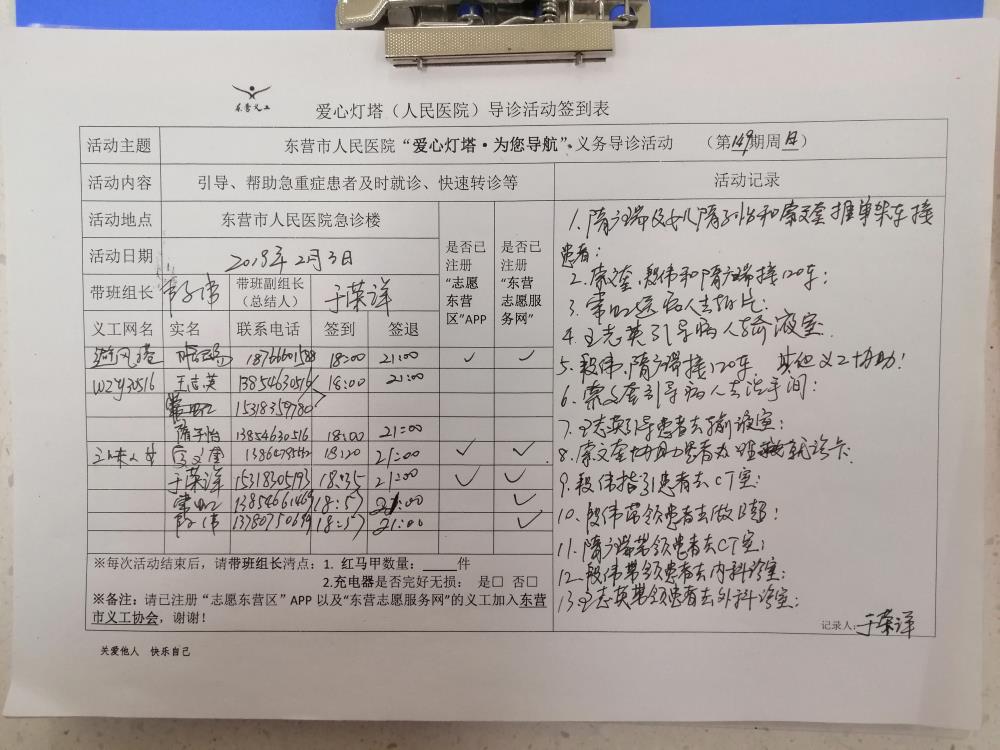 东营义工
爱心灯塔（人民医院）导诊活动签到表
活动主题 东营市人民医院“爱心灯塔·为您导航”·义务导诊活动 （第149期周日）
活动内容 引导、帮助急重症患者及时就诊、快速转诊等 活动记录
活动地点 东营市人民医院急诊楼 是否已注册“志愿东营区”APP 是否已注册“东营志愿服务网”
活动日期 2019年2月3日
带班组长 带班副组长（总结人） 于荣洋
义工网名 实名 联系电话 签到 签退
避风塔 18:00 21:00 ✓ ✓
WZYJ30516 王志英 13854630516 18:00 21:00
常虹 15318359780
隋子怡 13854630516 18:00 21:00
18:20 21:00 ✓ ✓
于荣洋 15318305193 18:35 21:00 ✓ ✓
常虹 13854661469 18:57 21:00 ✓
段伟 18:57 21:00 ✓
1.隋广瑞及女儿隋子怡和索文奎推单架车接
患者；
2.索文奎、段伟和隋广瑞接120车；
3.常虹送病人去拍片；
4.王志英引导病人去输液室.
5.段伟、隋广瑞接120车.其他义工协助！
6.索文奎引导病人去洗手间；
7.王志英引导患者去输液室；
8.索文奎协助患者办理就诊卡.
9.段伟指引患者去CT室；
10.段伟带领患者去做B超；
11.隋广瑞带领患者去CT室；
12.段伟带领患者去内科诊室；
13.王志英带领患者去外科诊室；
※每次活动结束后，请带班组长清点：1. 红马甲数量：_____件
2.充电器是否完好无损： 是□ 否□
※备注：请已注册“志愿东营区”APP 以及“东营志愿服务网”的义工加入东营
市义工协会，谢谢！
记录人：于荣洋
关爱他人 快乐自己